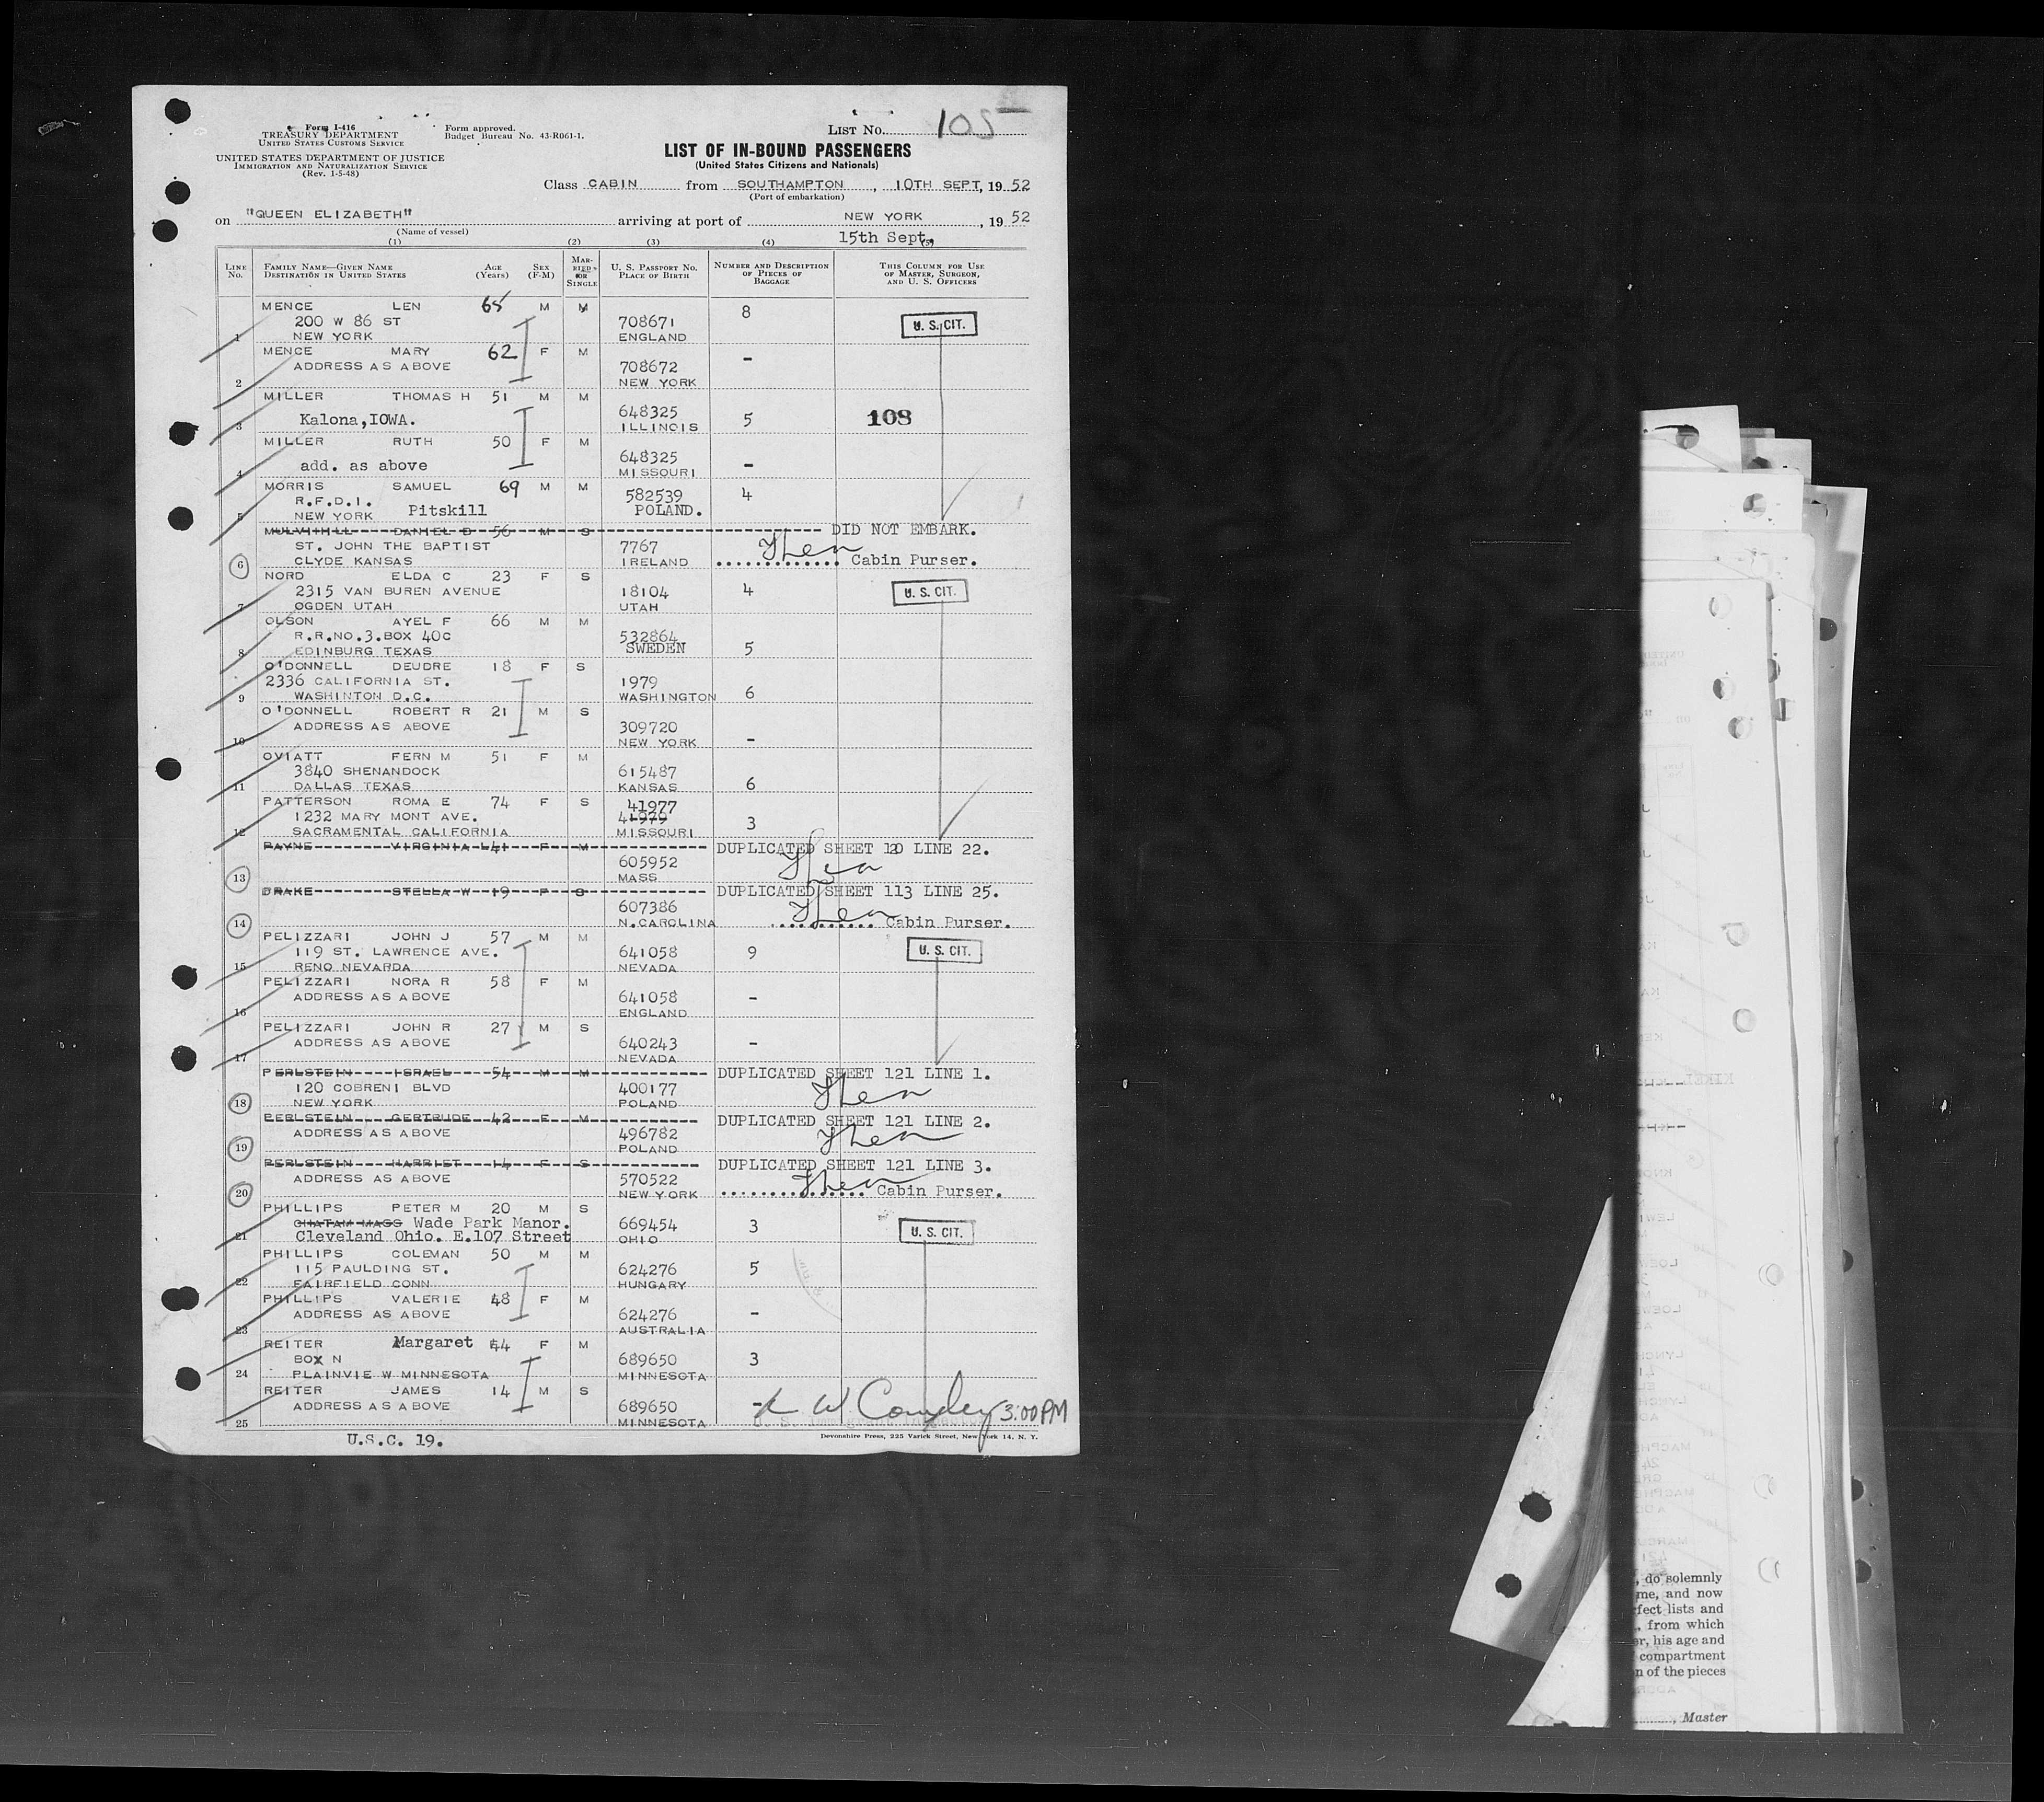 Form I-416
TREASURY DEPARTMENT
UNITED STATES CUSTOMS SERVICE
Form approved.
Budget Bureau No. 43-R061-1.
LIST NO. 105
UNITED STATES DEPARTMENT OF JUSTICE
IMMIGRATION AND NATURALIZATION SERVICE
(Rev. 1-5-48)
LIST OF IN-BOUND PASSENGERS
(United States Citizens and Nationals)
Class CABIN from SOUTHAMPTON, 10TH SEPT, 19 52
(Port of embarkation)
on "QUEEN ELIZABETH" arriving at port of NEW YORK, 19 52
(Name of vessel)
15th Sept.
(1) (2) (3) (4) (5)
LINE NO. FAMILY NAME—GIVEN NAME DESTINATION IN UNITED STATES AGE (Years) SEX (F-M) MARRIED OR SINGLE U. S. PASSPORT NO. PLACE OF BIRTH NUMBER AND DESCRIPTION OF PIECES OF BAGGAGE THIS COLUMN FOR USE OF MASTER, SURGEON, AND U. S. OFFICERS
MENCE LEN 65 M M 8
200 W 86 ST 708671 U. S. CIT.
1 NEW YORK ENGLAND
MENCE MARY 62 F M -
ADDRESS AS ABOVE 708672
2 NEW YORK
MILLER THOMAS H 51 M M
648325
3 Kalona, IOWA. ILLINOIS 5 108
MILLER RUTH 50 F M
648325
4 add. as above MISSOURI -
MORRIS SAMUEL 69 M M 582539 4
R.F.D.I. POLAND.
5 NEW YORK Pitskill
MULVIHILL DANIEL D 56 M S DID NOT EMBARK.
ST. JOHN THE BAPTIST 7767
6 CLYDE KANSAS IRELAND Cabin Purser.
NORD ELDA C 23 F S
2315 VAN BUREN AVENUE 18104 4 U. S. CIT.
7 OGDEN UTAH UTAH
OLSON AYEL F 66 M M
R.R.NO.3.BOX 40C 532864
8 EDINBURG TEXAS SWEDEN 5
O'DONNELL DEUDRE 18 F S
2336 CALIFORNIA ST. 1979
9 WASHINTON D.C. WASHINGTON 6
O'DONNELL ROBERT R 21 M S
ADDRESS AS ABOVE 309720
10 NEW YORK -
OVIATT FERN M 51 F M
3840 SHENANDOCK 615487
11 DALLAS TEXAS KANSAS 6
PATTERSON ROMA E 74 F S 41977
1232 MARY MONT AVE. 41979 3
12 SACRAMENTAL CALIFORNIA MISSOURI
PAYNE VIRGINIA L 41 F M DUPLICATED SHEET 120 LINE 22.
605952
13 MASS
DRAKE STELLA W 19 F S DUPLICATED SHEET 113 LINE 25.
607386
14 N.CAROLINA Cabin Purser.
PELIZZARI JOHN J 57 M M
119 ST. LAWRENCE AVE. 641058 9 U. S. CIT.
15 RENO NEVARDA NEVADA
PELIZZARI NORA R 58 F M
ADDRESS AS ABOVE 641058 -
16 ENGLAND
PELIZZARI JOHN R 27 M S
ADDRESS AS ABOVE 640243 -
17 NEVADA
PERLSTEIN ISRAEL 54 M M DUPLICATED SHEET 121 LINE 1.
120 COBRENI BLVD 400177
18 NEW YORK POLAND
PERLSTEIN GERTRUDE 42 F M DUPLICATED SHEET 121 LINE 2.
ADDRESS AS ABOVE 496782
19 POLAND
PERLSTEIN HARRIET 14 F S DUPLICATED SHEET 121 LINE 3.
ADDRESS AS ABOVE 570522
20 NEW YORK Cabin Purser.
PHILLIPS PETER M 20 M S
CHATAM MASS Wade Park Manor. 669454 3 U. S. CIT.
21 Cleveland Ohio. E.107 Street OHIO
PHILLIPS COLEMAN 50 M M
115 PAULDING ST. 624276 5
22 FAIRFIELD CONN HUNGARY
PHILLIPS VALERIE 48 F M
ADDRESS AS ABOVE 624276 -
23 AUSTRALIA
REITER Margaret 44 F M
BOX N 689650 3
24 PLAINVIE W MINNESOTA MINNESOTA
REITER JAMES 14 M S
ADDRESS AS ABOVE 689650 - 3:00 PM
25 MINNESOTA
U.S.C. 19.
Devonshire Press, 225 Varick Street, New York 14, N. Y.
, do solemnly
me, and now
fect lists and
, from which
er, his age and
compartment
n of the pieces
, Master